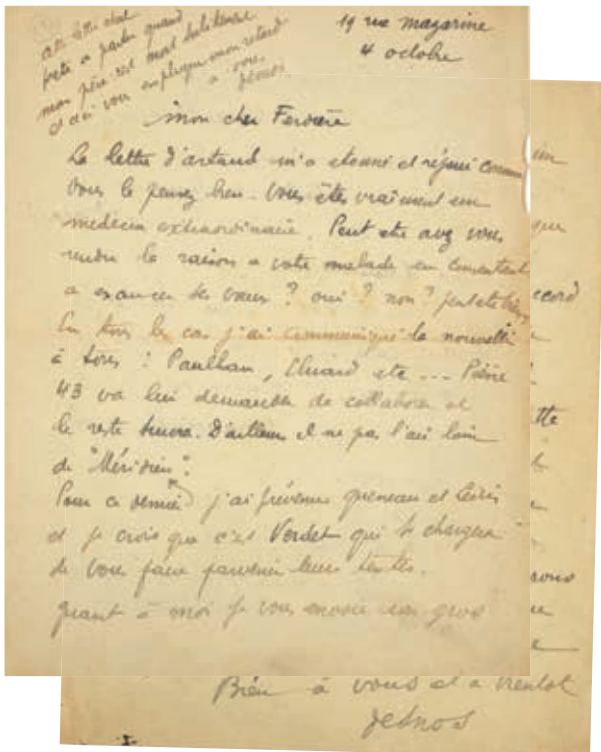 19 rue Mazarine
4 octobre
prete a partir quand
mon père est mort subitement
et ceci vous explique mon retard
a vous
Desnos
Mon cher Ferdière
La lettre d'artaud m'a etonné et réjoui comme
vous le pensez bien. Vous êtes vraiment un
medecin extraordinaire. Peut etre avez vous
rendu la raison a votre malade en consentant
a exaucer ses vœux ? oui ? non ? peut etre
En tous les cas j'ai communiqué la nouvelle
à tous : Paulhan, Eluard etc ... Poésie
43 va lui demander de collaborer et
le reste suivra. D'ailleurs il ne pas l'air loin
de "Méridien".
Pour ce dernier j'ai prévenu queneau et Leiris
et je crois que c'est Verdet qui se chargera
de vous faire parvenir leurs textes.
quant à moi je vous envoie un gros
que
ccord
tte
vous
Bien à vous et a bientot
Desnos